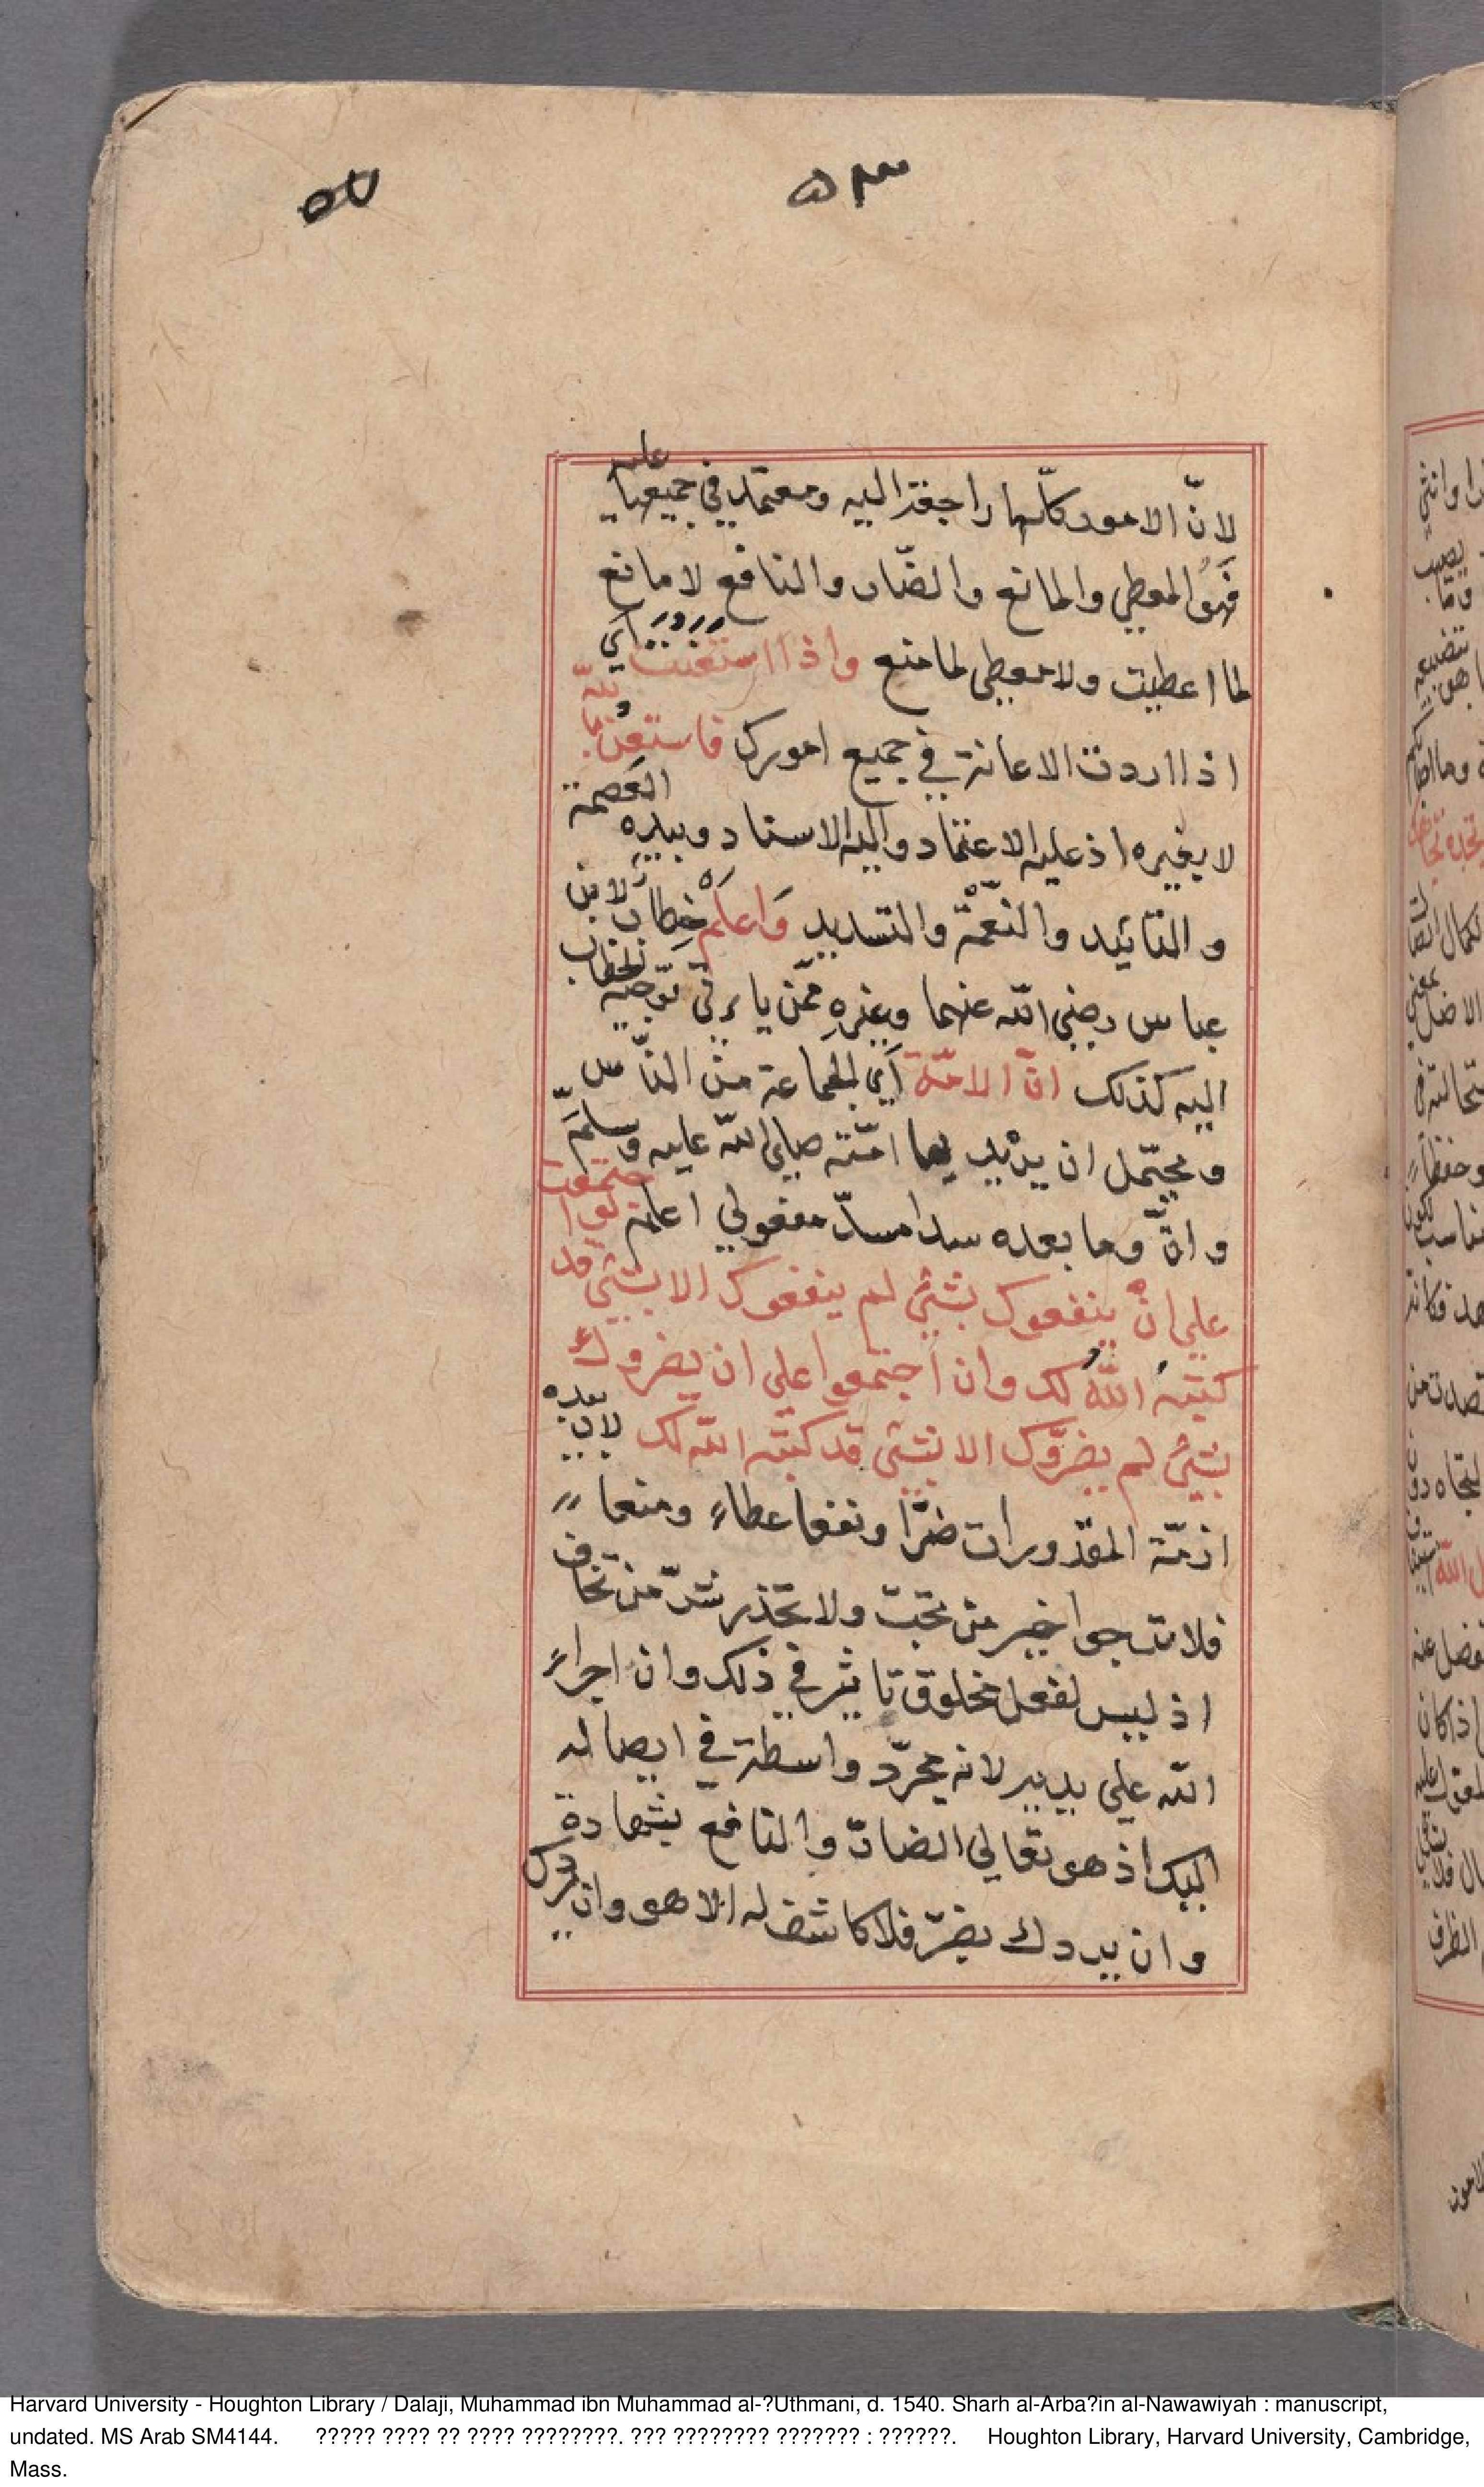 ٥٣
لانّ الامور كلّها راجعة اليه ومعتمد في جميعها عليه
فهو المعطي والمانع والضّار والنافع لا مانع
لما اعطيت ولا معطي لما منع واذا استعنت اي
اذا اردت الاعانة في جميع امورك فاستعن بالله
لا بغيره اذ عليه الاعتماد واليه الاستناد وبيده العصمة
و التائيد والنعمة والتسديد واعلم خطاب لابن
عباس رضي الله عنهما وغيره ممّن ياتي توجيه الخطاب
اليه كذلك انّ الامّة اي الجماعة من النّاس
و يحتمل ان يريد بها امّته صلي الله عليه وسلّم
و انّ وما بعده سدا مسدّ مفعولي اعلم لو اجتمعت
علي ان ينفعوك بشئ لم ينفعوك الا بشئ قد
كتبه الله لك وان اجتمعوا علي ان يضروك
بشئ لم يضرّوك الا بشئ قد كتبه الله لك لان بيده
ازمّة المقدورات ضرّا ونفعا عطاء ومنعا
فلا ترجوا خير من تحبّ ولا تحذر شرّ من تخاف
اذ ليس لفعل مخلوق تاثير في ذلك وان اجراء
الله علي يديه لانه مجرّد واسطة في ايصاله
اليك اذ هو تعالي الضارّ والنافع بشهادة
و ان يردك بضرّ فلا كاشف له الا هو وان يردك
Harvard University - Houghton Library / Dalaji, Muhammad ibn Muhammad al-?Uthmani, d. 1540. Sharh al-Arba?in al-Nawawiyah : manuscript,
undated. MS Arab SM4144. ????? ???? ?? ???? ????????. ??? ???????? ??????? : ??????. Houghton Library, Harvard University, Cambridge,
Mass.